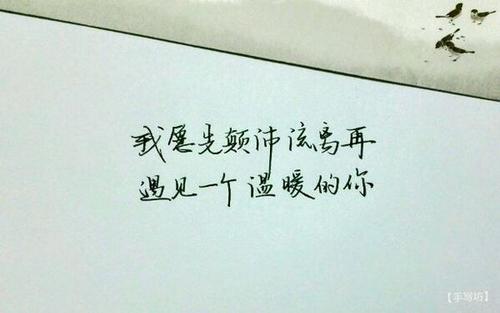 我愿先颠沛流离再
遇见一个温暖的你
【手写坊】